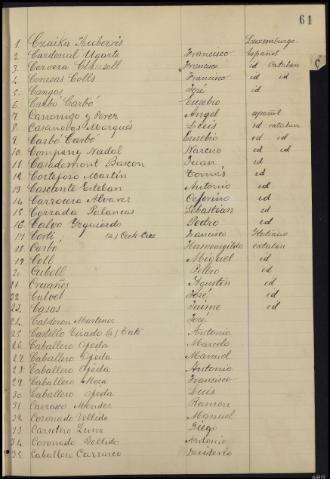 61
C
1. Czaika Huberis Luxemburgo
2. Cardenal Ugarte Francisco español
3. Cervera Clausell Francisco id catalan
4. Conesas Colls Francisco id id
5. Cangos José id
6. Carbó Carbó Eusebio
7. Canonigo y Forer Angel español
8. Casanobas Marqués Luis id catalan
9. Carbó Carbó Eusebio id id
10. Company Nadal Narciso id id
11. Casademont Bascon Juan id
12. Cortefoso Martín Tomás id
13. Cascante Esteban Antonio id
14. Carrocera Alvarez Ceferino id
15. Corrada Sebastian id
16. Calvo Izquierdo Pedro id
17. Corti Francisco Italiano
18. Carbó Hermenegildo catalan
19. Coll Miguel id
20. Cuboll Pedro id
21. Cruañes Agustín id
22. Calvet José id
23. Casas Jaime id
24. Calderon Martinez José
25. Castillo Antonio
26. Caballero Ojeda Marcelo
27. Caballero Ojeda Manuel
28. Caballero Ojeda Antonio
29. Caballero Meza Francisco
30. Caballero Ojeda Luis
31. Carrasco Mendez Ramon
32. Coronado Vellido Manuel
33. Carretero Luna Diego
34. Coronado Vellido Antonio
35. Caballero Carrasco